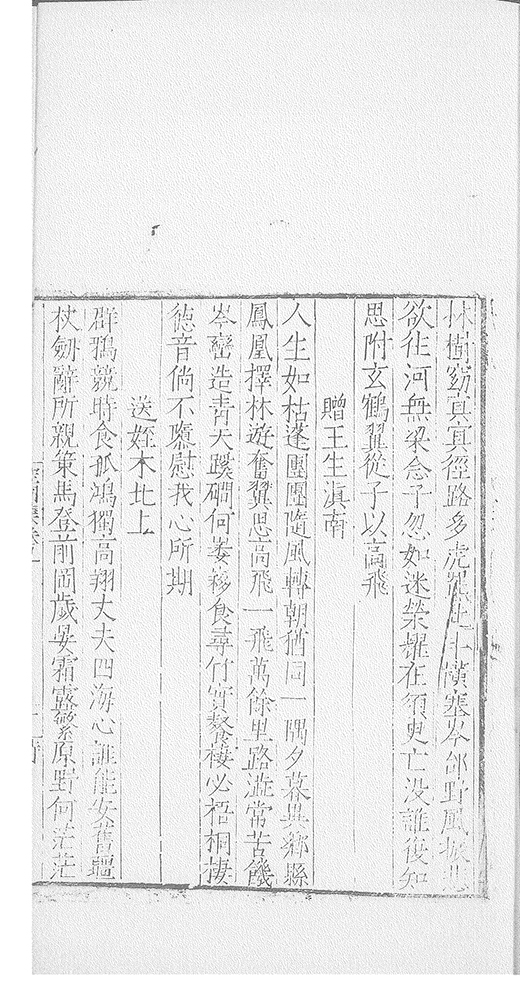 林樹窈冥冥徑路多虎羆北上橫塞岑郃野風振悲
欲徃河無梁念子忽如迷榮耀在須臾亡没誰復知
思附玄鶴翼從子以高飛
贈王生滇南
人生如枯蓬團團隨風轉朝猶同一隅夕暮異鄉縣
鳳凰擇林遊奮翼思高飛一飛萬餘里路澁常苦饑
岑巒造青天蹊磵何萎蕤食尋竹實餐棲必梧桐棲
徳音倘不隳慰我心所期
送姪木北上
群鴉競時食孤鴻獨高翔丈夫四海心誰能安舊疆
杖劒辭所親策馬登前岡歲晏霜露繁原野何茫茫